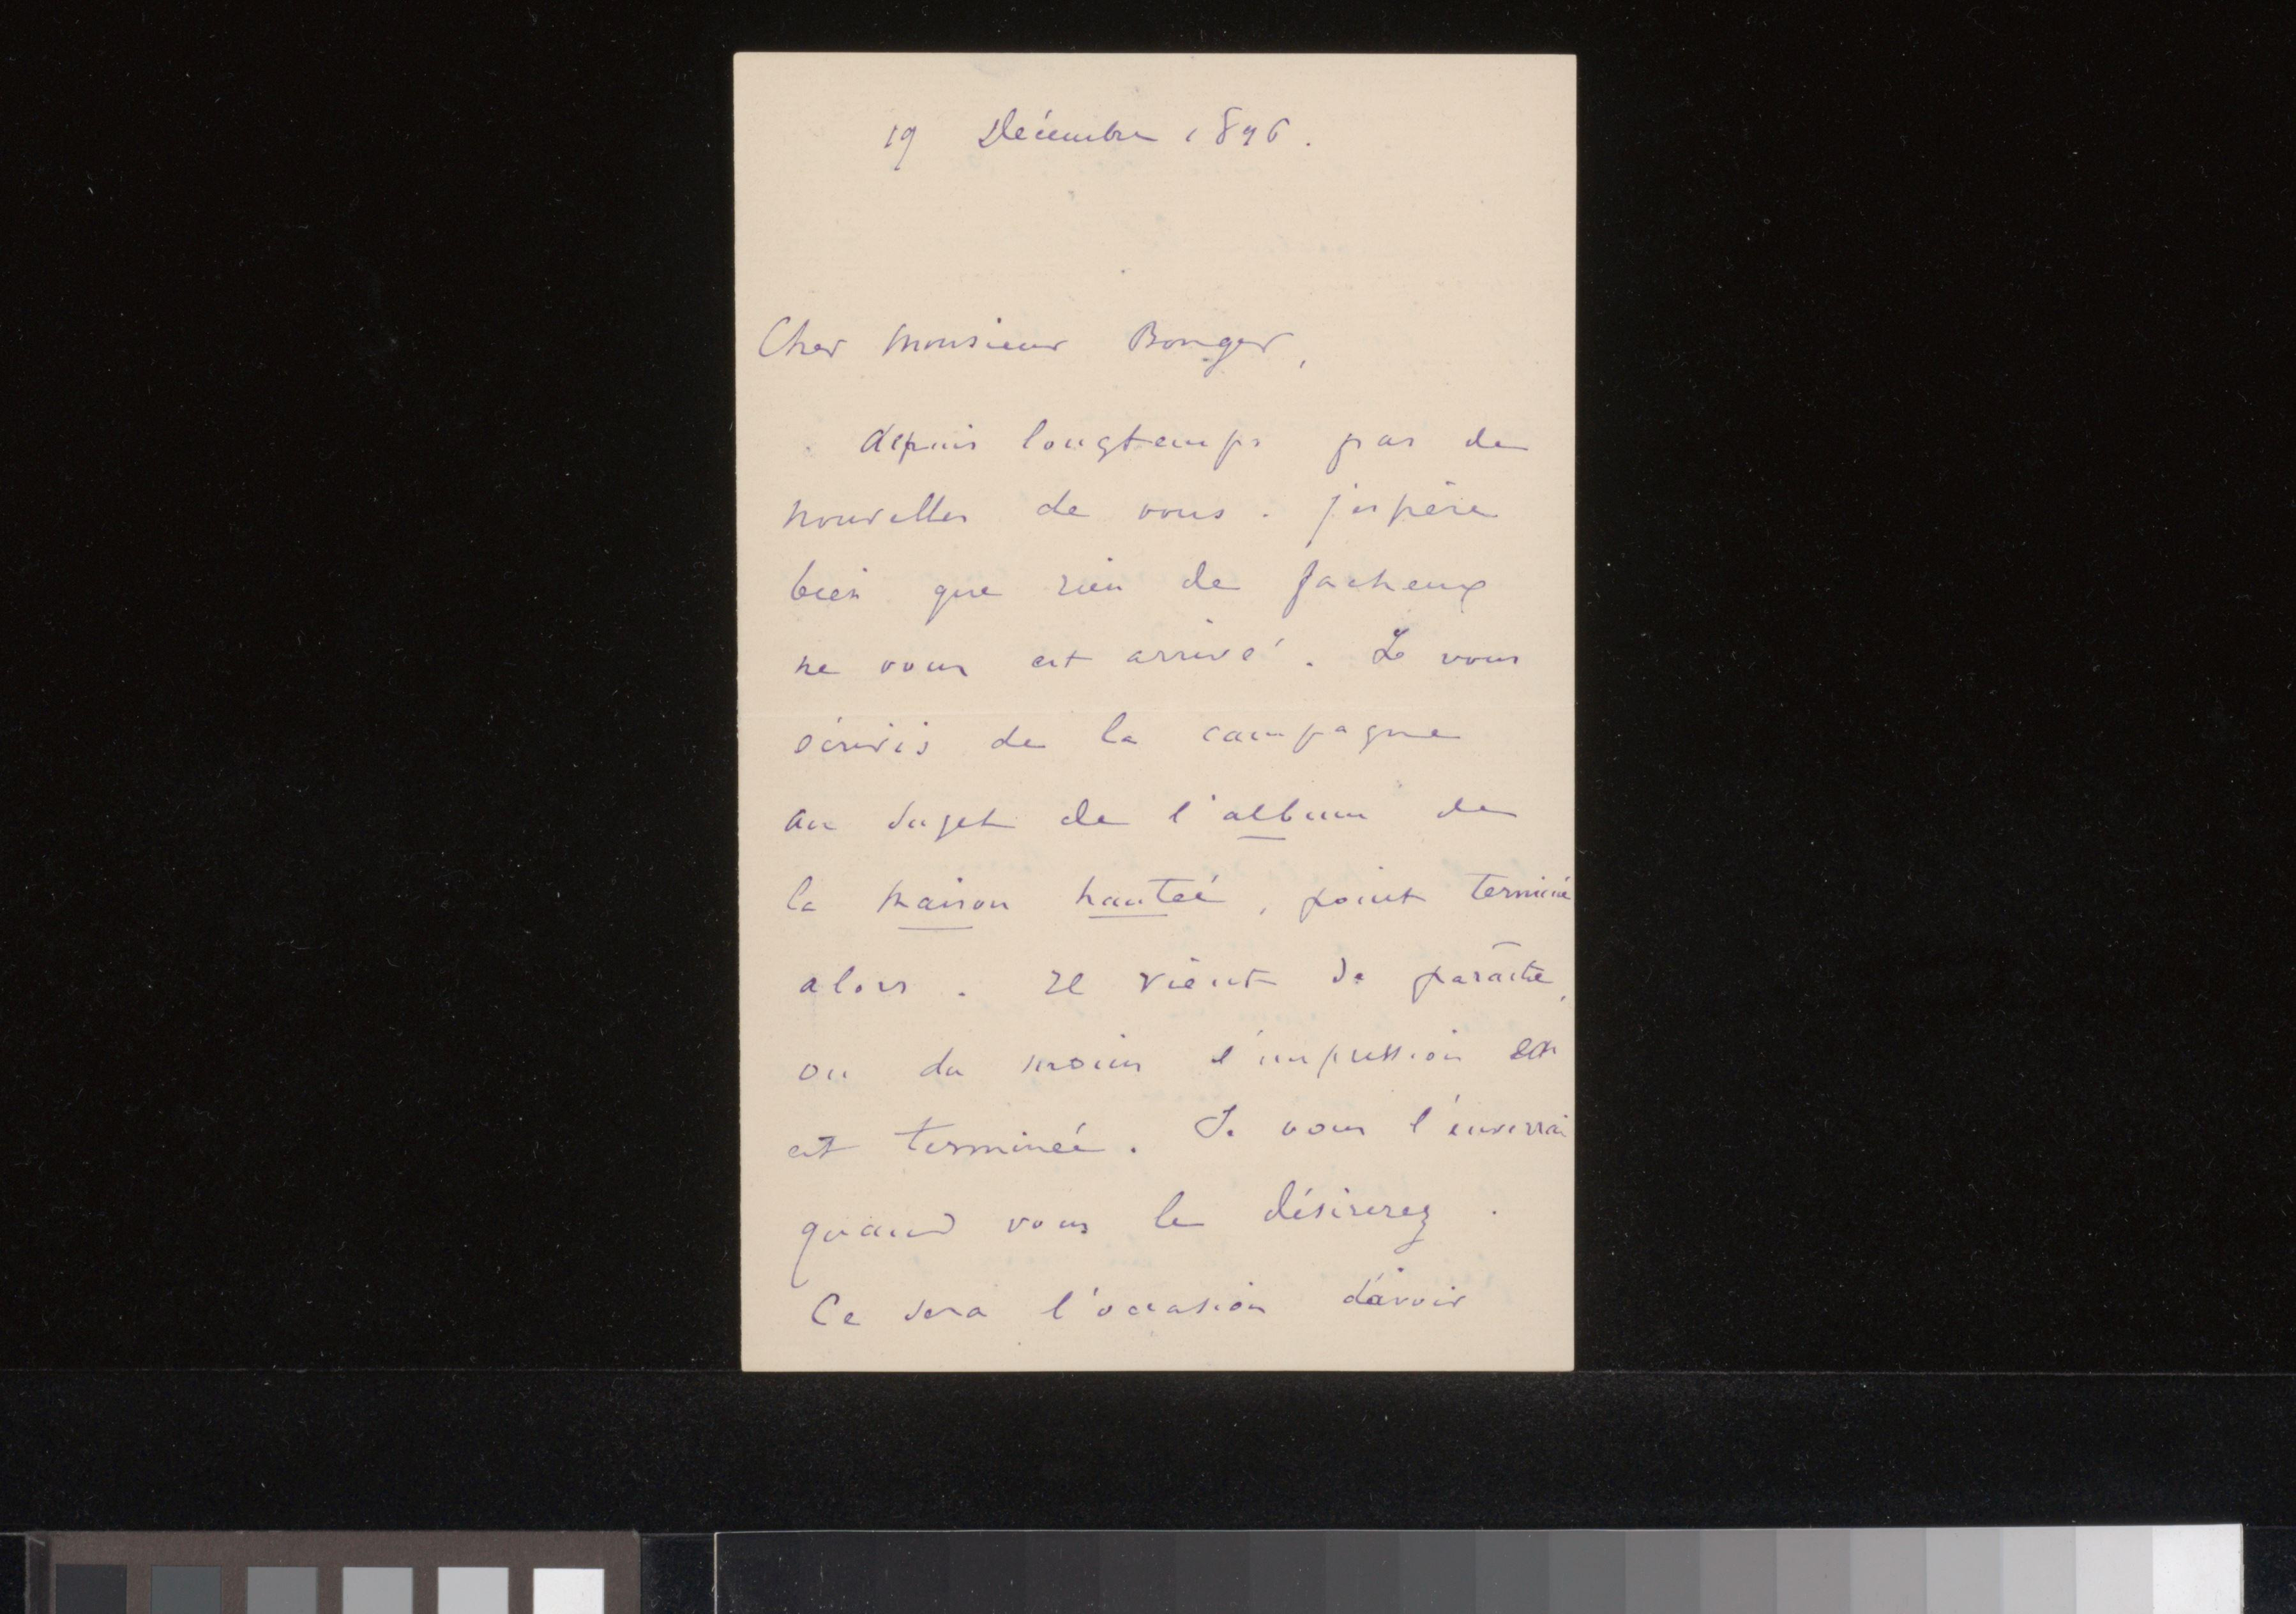 19 Décembre 1896.
Cher Monsieur Bonger,
depuis longtemps pas de
nouvelles de vous. j'espère
bien que rien de facheux
ne vous est arrivé. Je vous
écrivis de la campagne
au sujet de l'album de
la maison hantée, point terminé
alors. Il vient de paraître,
ou du moins l'impression en
est terminée. Je vous l'enverrai
quand vous le désirerez.
Ce sera l'occasion d'avoir